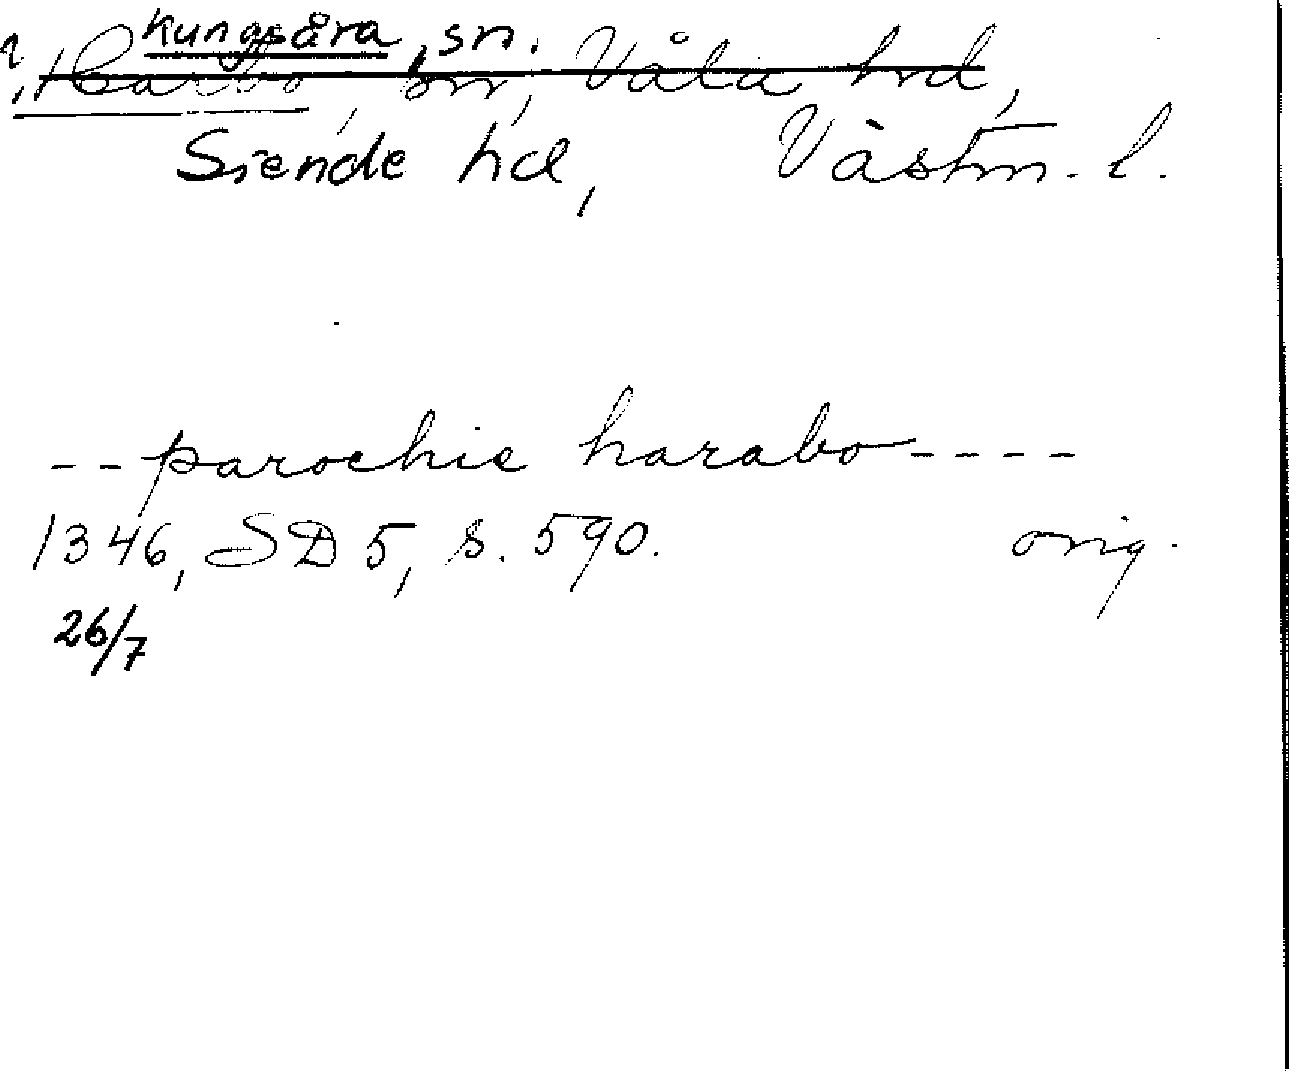 Kungsåra, sn.
Harbo, sn, Våla hrd,
Siende hd, Västm. l.
-- parochie harabo ----
1346, SD 5, s. 590. orig.
26/7